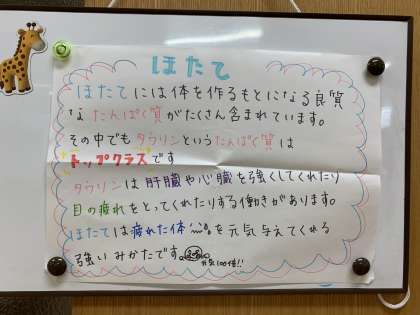 ほたて
ほたてには体を作るもとになる良質
なたんぱく質がたくさん含まれています。
その中でもタウリンというたんぱく質は
トップクラスです
タウリンは肝臓や心臓を強くしてくれたり
目の疲れをとってくれたりする働きがあります。
ほたては疲れた体を元気与えてくれる
強いみかたです。元気100倍!!